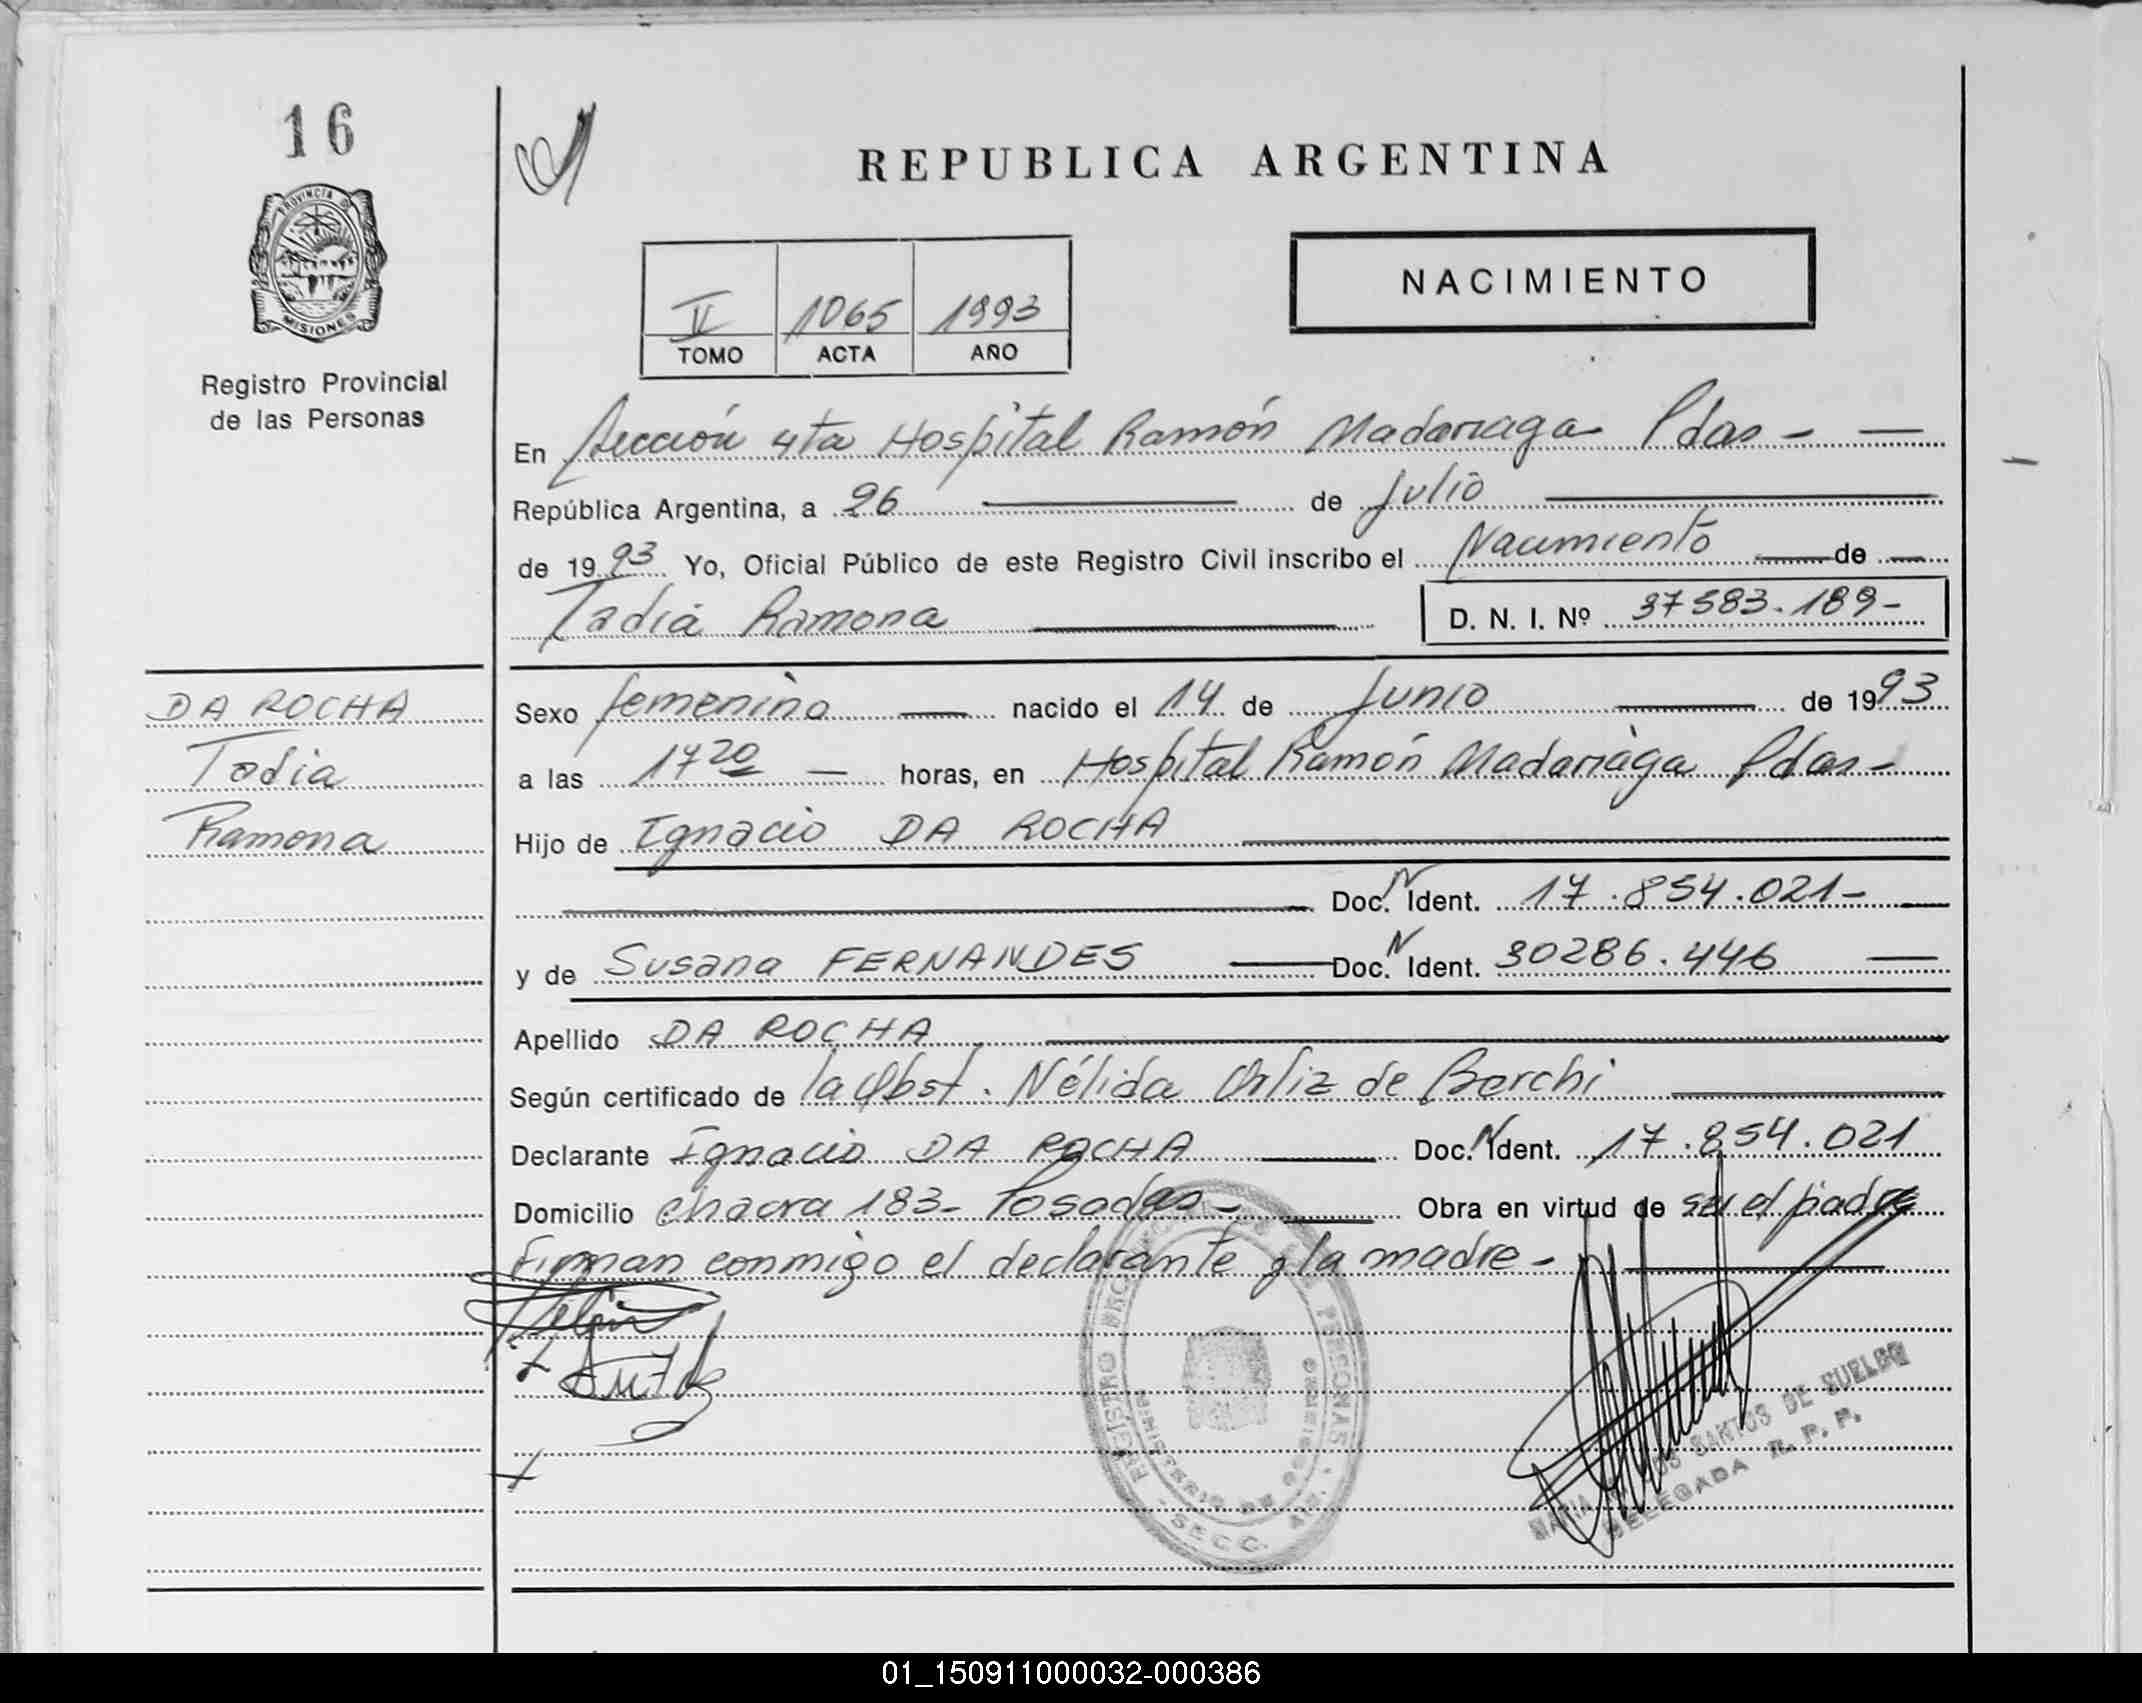 16
PROVINCIA DE
MISIONES
Registro Provincial
de las Personas
REPUBLICA ARGENTINA
NACIMIENTO
II 1065 1993
TOMO ACTA AÑO
En Sección 4ta Hospital Ramón Madariaga Pdas - —
República Argentina, a 26 — de Julio —
de 1993 Yo, Oficial Público de este Registro Civil inscribo el Nacimiento — de —
Tadia Ramona — D. N. I. Nº 37583.189-
DA ROCHA
Tadia
Ramona
Sexo femenino — nacido el 14 de Junio — de 1993
a las 17 20 — horas, en Hospital Ramón Madariaga Pdas -
Hijo de Ignacio DA ROCHA —
— Doc. N Ident. 17.854.021- —
y de Susana FERNANDES — Doc. N Ident. 30286.446 —
Apellido DA ROCHA —
Según certificado de la Obst. Nélida Ortiz de Borchi —
Declarante Ignacio DA ROCHA — Doc. N Ident. 17.854.021
Domicilio Chacra 183- Posadas - — Obra en virtud de ser el padre
Firman conmigo el declarante y la madre - —
REGISTRO PERSONAS
MINISTERIO DE GOBIERNO
SECC.
MARIA DOS SANTOS DE SUELDO
DELEGADA R. P. P.
01_150911000032-000386